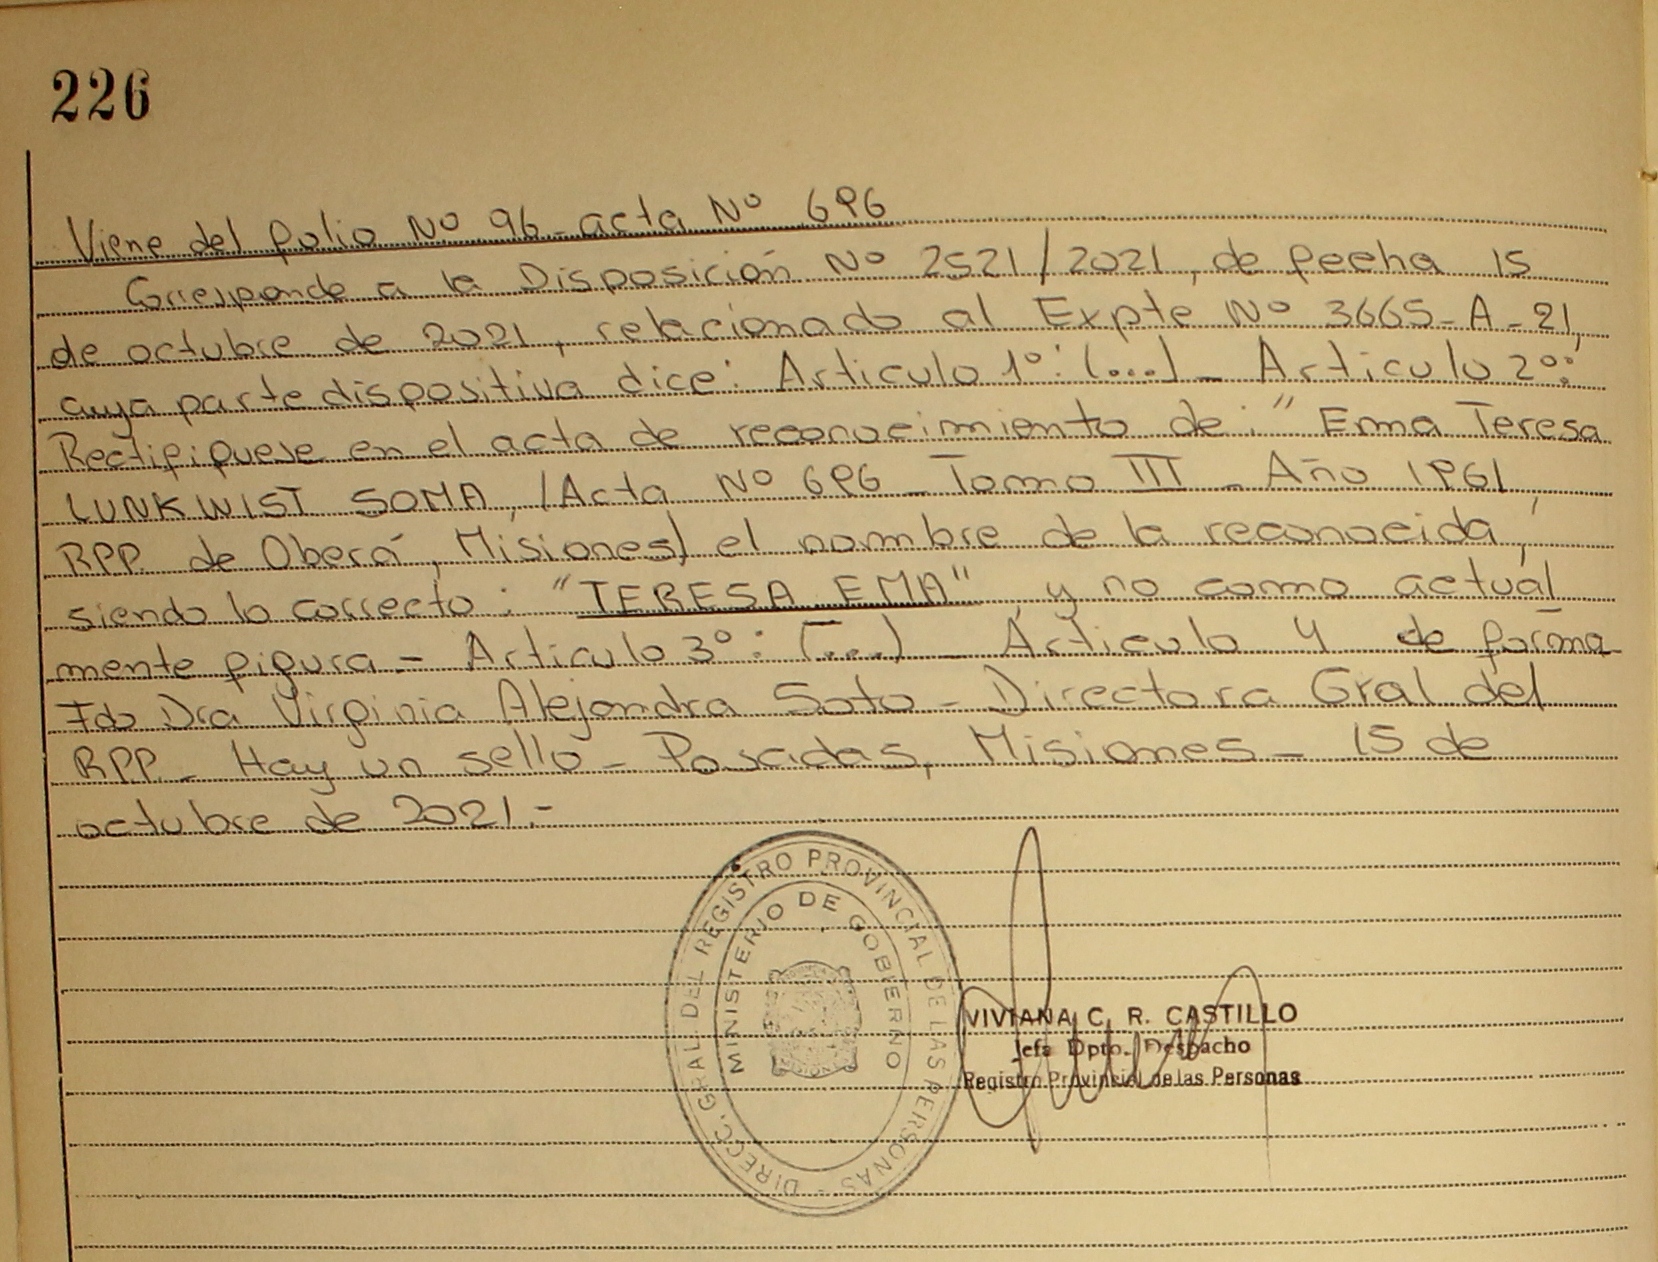 226
Viene del folio Nº 96 - acta Nº 696
Corresponde a la Disposición Nº 2521/2021, de fecha 15
de octubre de 2021, relacionado al Expte Nº 3665-A-21,
cuya parte dispositiva dice: Articulo 1º: (....) - Articulo 2º:
Rectifiquese en el acta de reconocimiento de: "Ema Teresa
LUNKWIST SOMA, (Acta Nº 696 - Tomo III - Año 1961,
RPP. de Oberá, Misiones) el nombre de la reconocida,
siendo lo correcto: "TERESA EMA", y no como actual
mente figura - Articulo 3º: (....) - Articulo 4 de forma
Fdo Dra Virginia Alejandra Soto - Directora Gral del
RPP - Hay un sello - Posadas, Misiones - 15 de
octubre de 2021.-
DIRECC. GRAL. DEL REGISTRO PROVINCIAL DE LAS PERSONAS -
MINISTERIO DE GOBIERNO
VIVIANA C. R. CASTILLO
Jefa Dpto. Despacho
Registro Provincial de las Personas